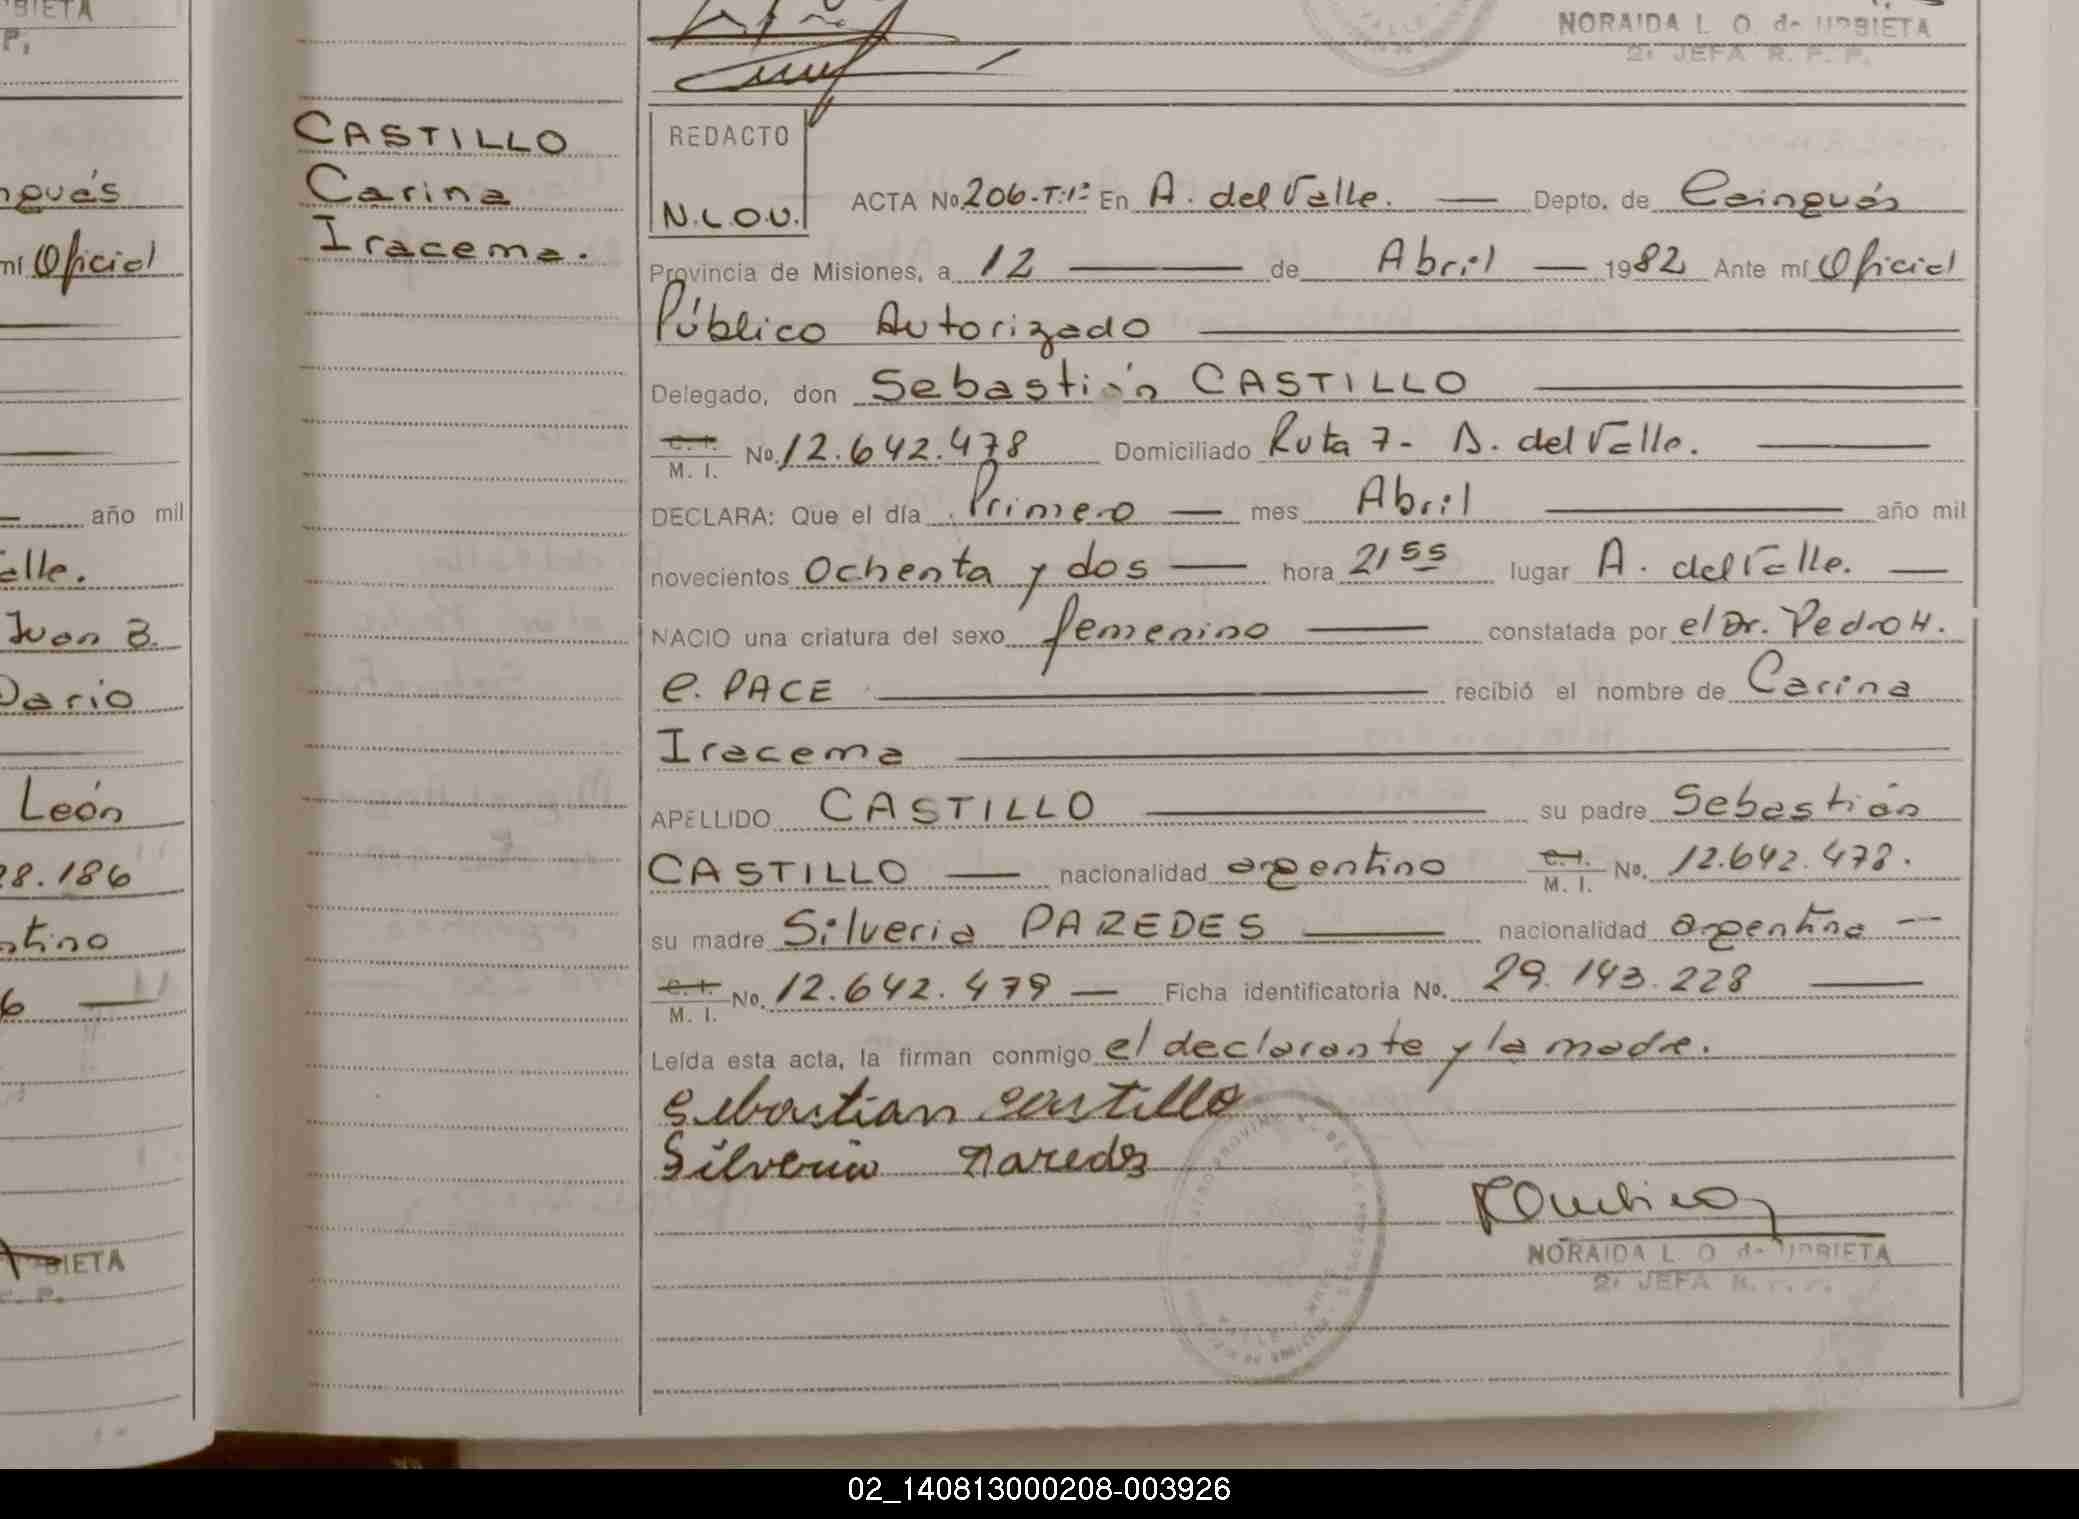 BIETA
P.
NORAIDA L. O. de URBIETA
2ª JEFA R. P. P.
CASTILLO
Carina
Iracema.
REDACTO
N.L.O.U.
ACTA No 206-T:1º En A. del Valle. — Depto. de Caínguás
Provincia de Misiones, a 12 — de Abril — 1982 Ante mí Oficial
Público Autorizado
Delegado, don Sebastián CASTILLO
C. I. / M. I. No. 12.642.478 Domiciliado Ruta 7- A. del Valle. —
DECLARA: Que el día Primero — mes Abril — año mil
novecientos Ochenta y dos — hora 21 55 lugar A. del Valle. —
NACIO una criatura del sexo femenino — constatada por el Dr. Pedro H.
C. PACE — recibió el nombre de Carina
Iracema
APELLIDO CASTILLO — su padre Sebastián
CASTILLO — nacionalidad argentino C. I. / M. I. No. 12.642.478.
su madre Silveria PAREDES — nacionalidad argentina —
C. I. / M. I. No. 12.642.479 — Ficha identificatoria No. 29.143.228 —
Leída esta acta, la firman conmigo el declarante y la madre.
Sebastian Castillo
Silveria Paredes
NORAIDA L. O. de URBIETA
2ª JEFA R. P. P.
nguás
mí Oficial
año mil
alle.
Juan B.
Dario
León
28.186
ntino
6 —
BIETA
02_140813000208-003926